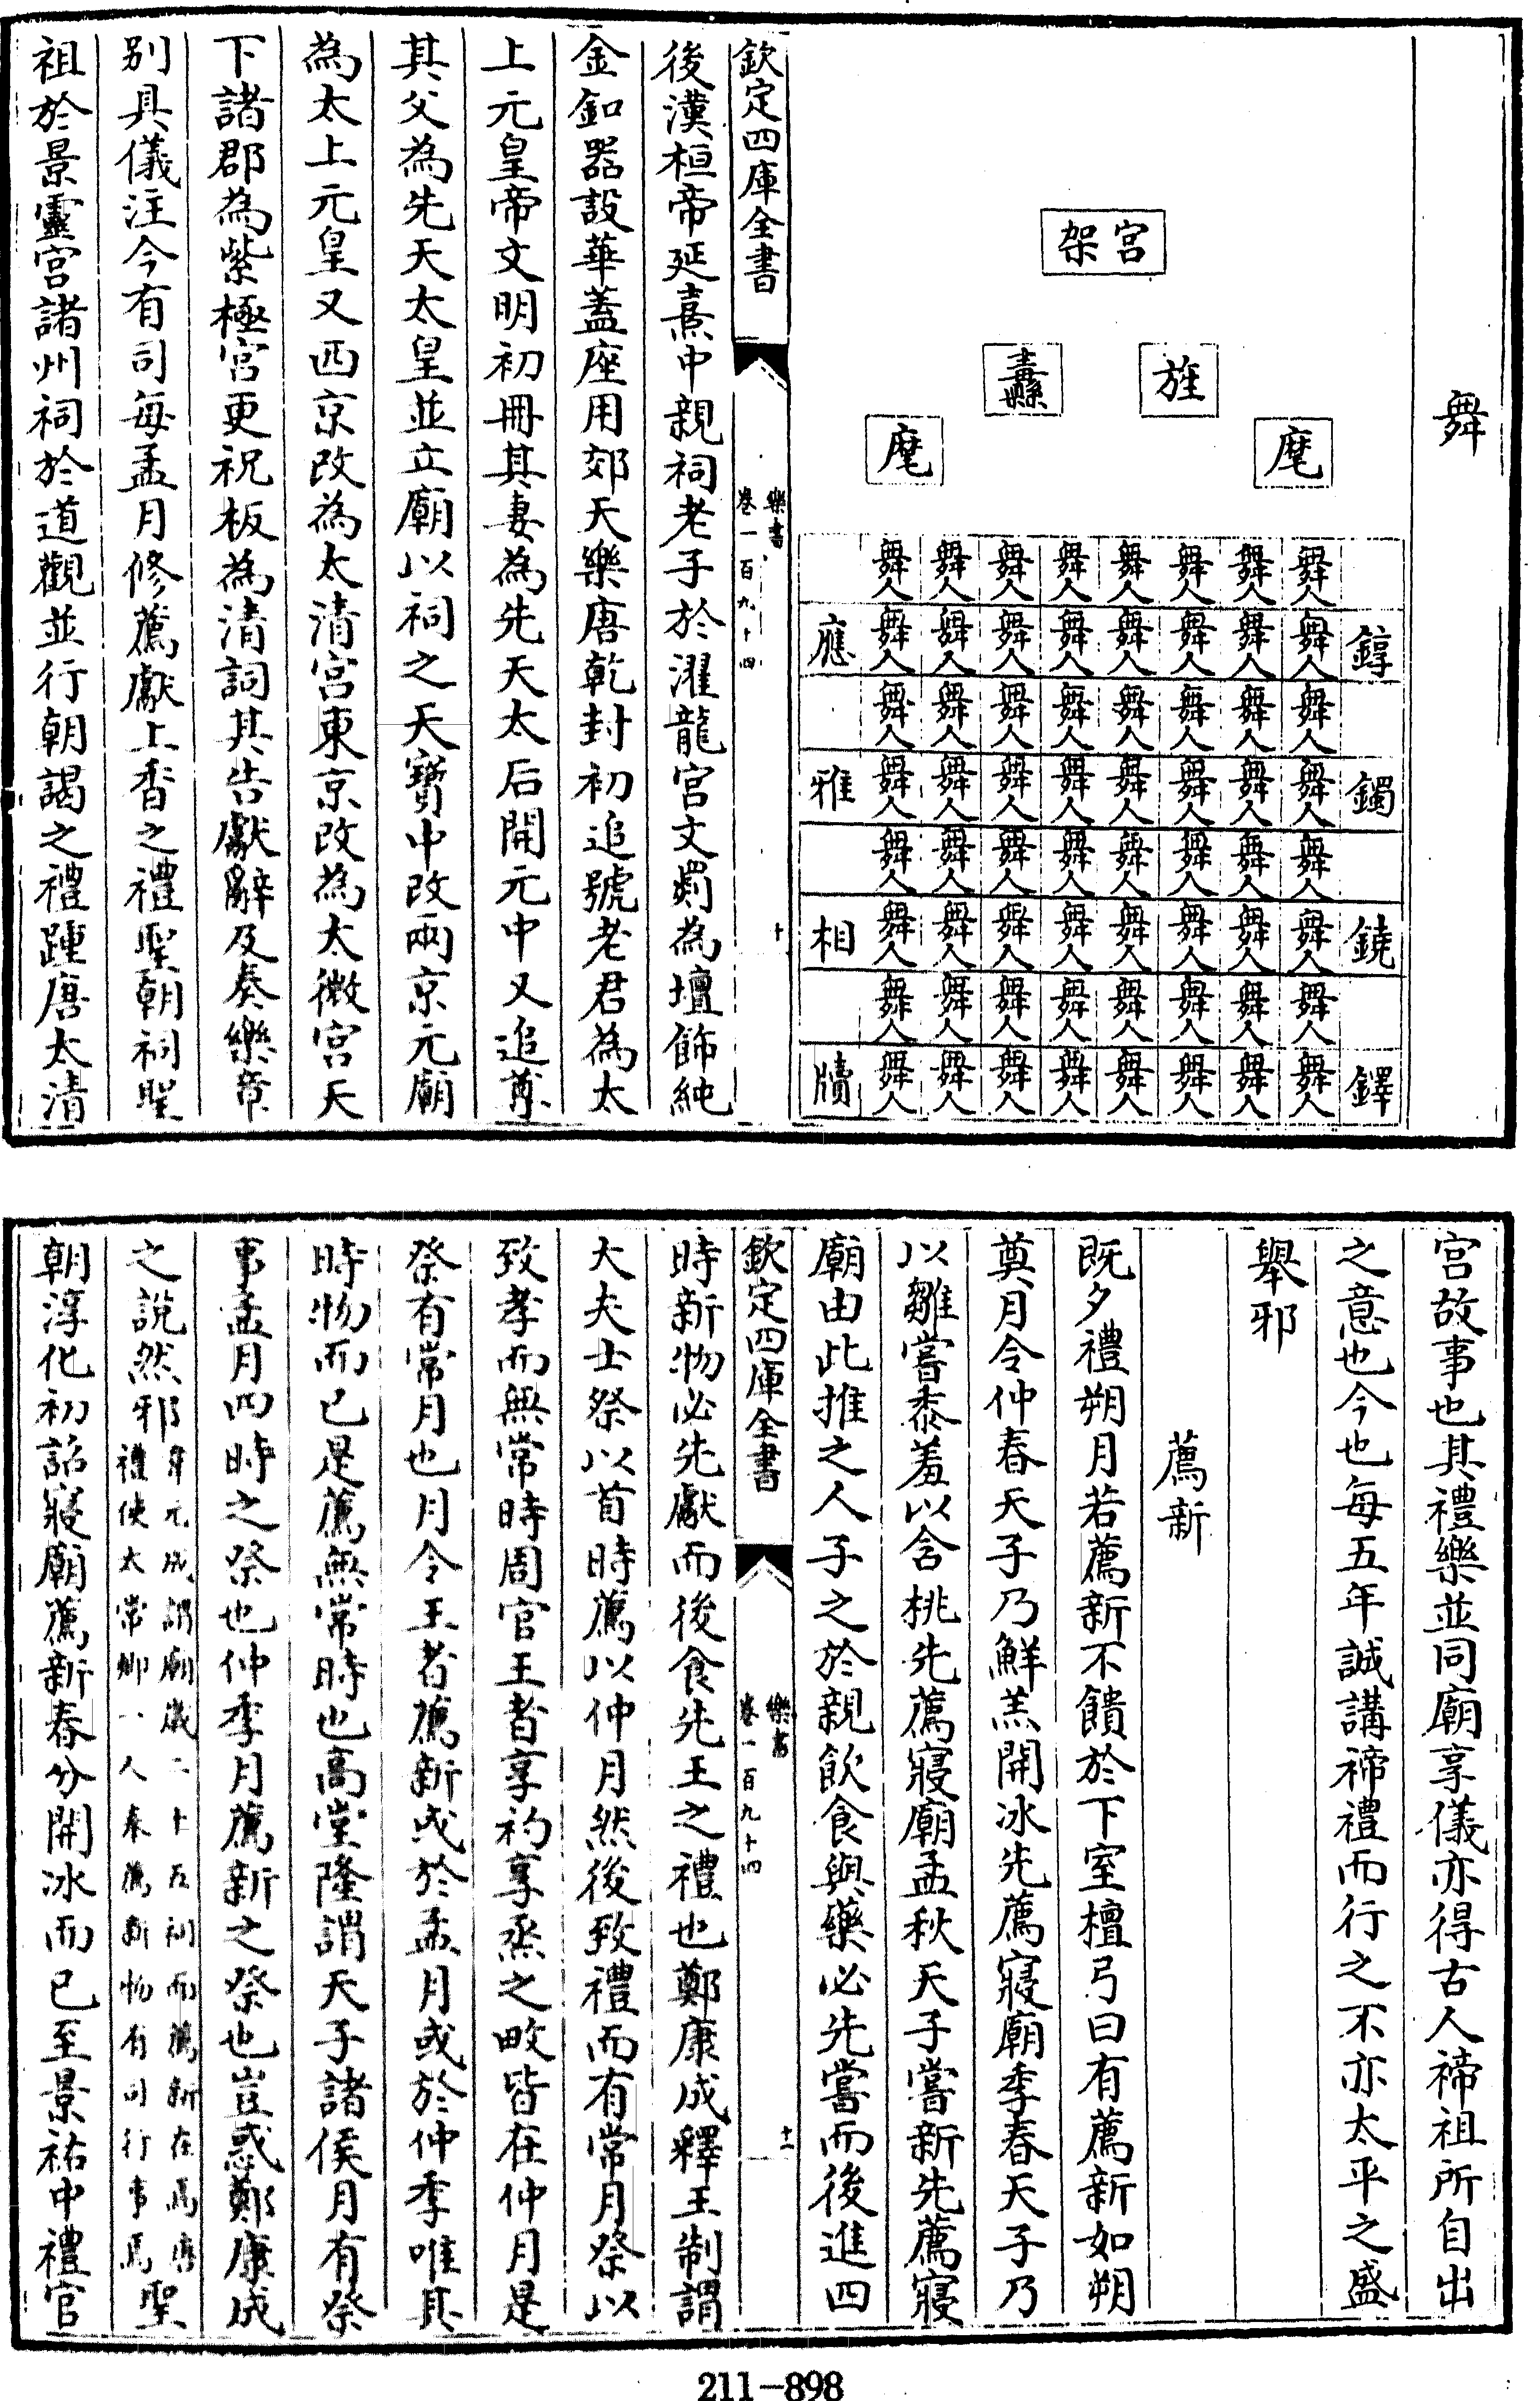 舞
宫架
旌
纛
麾
麾
舞人 舞人 舞人 舞人 舞人 舞人 舞人 舞人
錞 舞人 舞人 舞人 舞人 舞人 舞人 舞人 舞人 應
舞人 舞人 舞人 舞人 舞人 舞人 舞人 舞人
鐲 舞人 舞人 舞人 舞人 舞人 舞人 舞人 舞人 雅
舞人 舞人 舞人 舞人 舞人 舞人 舞人 舞人
鐃 舞人 舞人 舞人 舞人 舞人 舞人 舞人 舞人 相
舞人 舞人 舞人 舞人 舞人 舞人 舞人 舞人
鐸 舞人 舞人 舞人 舞人 舞人 舞人 舞人 舞人 牘
欽定四庫全書
樂書
卷一百九十四
十
後漢桓帝延熹中親祠老子於濯龍宫文罽為壇飾純
金釦器設華蓋座用郊天樂唐乾封初追號老君為太
上元皇帝文明初冊其妻為先天太后開元中又追尊
其父為先天太皇並立廟以祠之天寶中改兩京元廟
為太上元皇又西京改為太清宫東京改為太微宫天
下諸郡為紫極宫更祝板為清詞其告獻辭及奏樂章
别具儀注今有司每孟月修薦獻上香之禮聖朝祠聖
祖於景靈宫諸州祠於道觀並行朝謁之禮踵唐太清
宫故事也其禮樂並同廟享儀亦得古人禘祖所自出
之意也今也每五年誠講禘禮而行之不亦太平之盛
舉邪
薦新
既夕禮朔月若薦新不饋於下室檀弓曰有薦新如朔
奠月令仲春天子乃鮮羔開冰先薦寢廟季春天子乃
以雛嘗黍羞以含桃先薦寢廟孟秋天子嘗新先薦寢
廟由此推之人子之於親飲食與藥必先嘗而後進四
欽定四庫全書
樂書
卷一百九十四
十一
時新物必先獻而後食先王之禮也鄭康成釋王制謂
大夫士祭以首時薦以仲月然後致禮而有常月祭以
致孝而無常時周官王者享礿享烝之畋皆在仲月是
祭有常月也月令王者薦新或於孟月或於仲季唯其
時物而已是薦無常時也高堂隆謂天子諸侯月有祭
事孟月四時之祭也仲季月薦新之祭也豈惑鄭康成
之說然邪韋元成謂廟歲二十五祠而薦新在焉唐禮使太常卿一人奉薦新物有司行事焉聖
朝淳化初詔寢廟薦新春分開冰而已至景祐中禮官
211-898